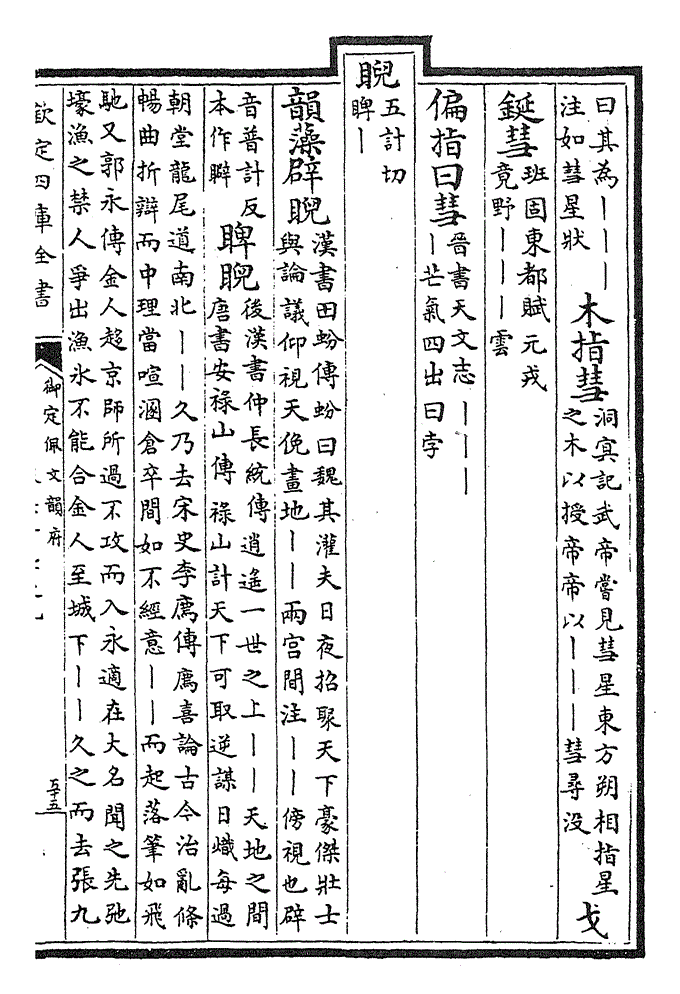 曰其為丨丨丨
注如彗星狀
木指彗
洞㝠記武帝嘗見彗星東方朔相指星
之木以授帝帝以丨丨丨彗尋没
戈
鋋彗
班固東都賦元戎
竟野丨丨丨雲
偏指曰彗
晉書天文志丨丨丨
丨芒氣四出曰孛
睨
五計切
睥丨
韻藻辟睨
漢書田蚡傳蚡曰魏其灌夫日夜招聚天下豪傑壯士
與論議仰視天俛畫地丨丨兩宫間注丨丨傍視也辟
音普計反
本作睥
睥睨
後漢書仲長統傳逍遙一世之上丨丨天地之間
唐書安祿山傳祿山計天下可取逆謀日熾每過
朝堂龍尾道南北丨丨久乃去宋史李廌傳廌喜論古今治亂條
暢曲折辯而中理當喧溷倉卒間如不經意丨丨而起落筆如飛
馳又郭永傳金人趍京師所過不攻而入永適在大名聞之先弛
壕漁之禁人爭出漁氷不能合金人至城下丨丨久之而去張九
欽定四庫全書
御定佩文韻府
五十五